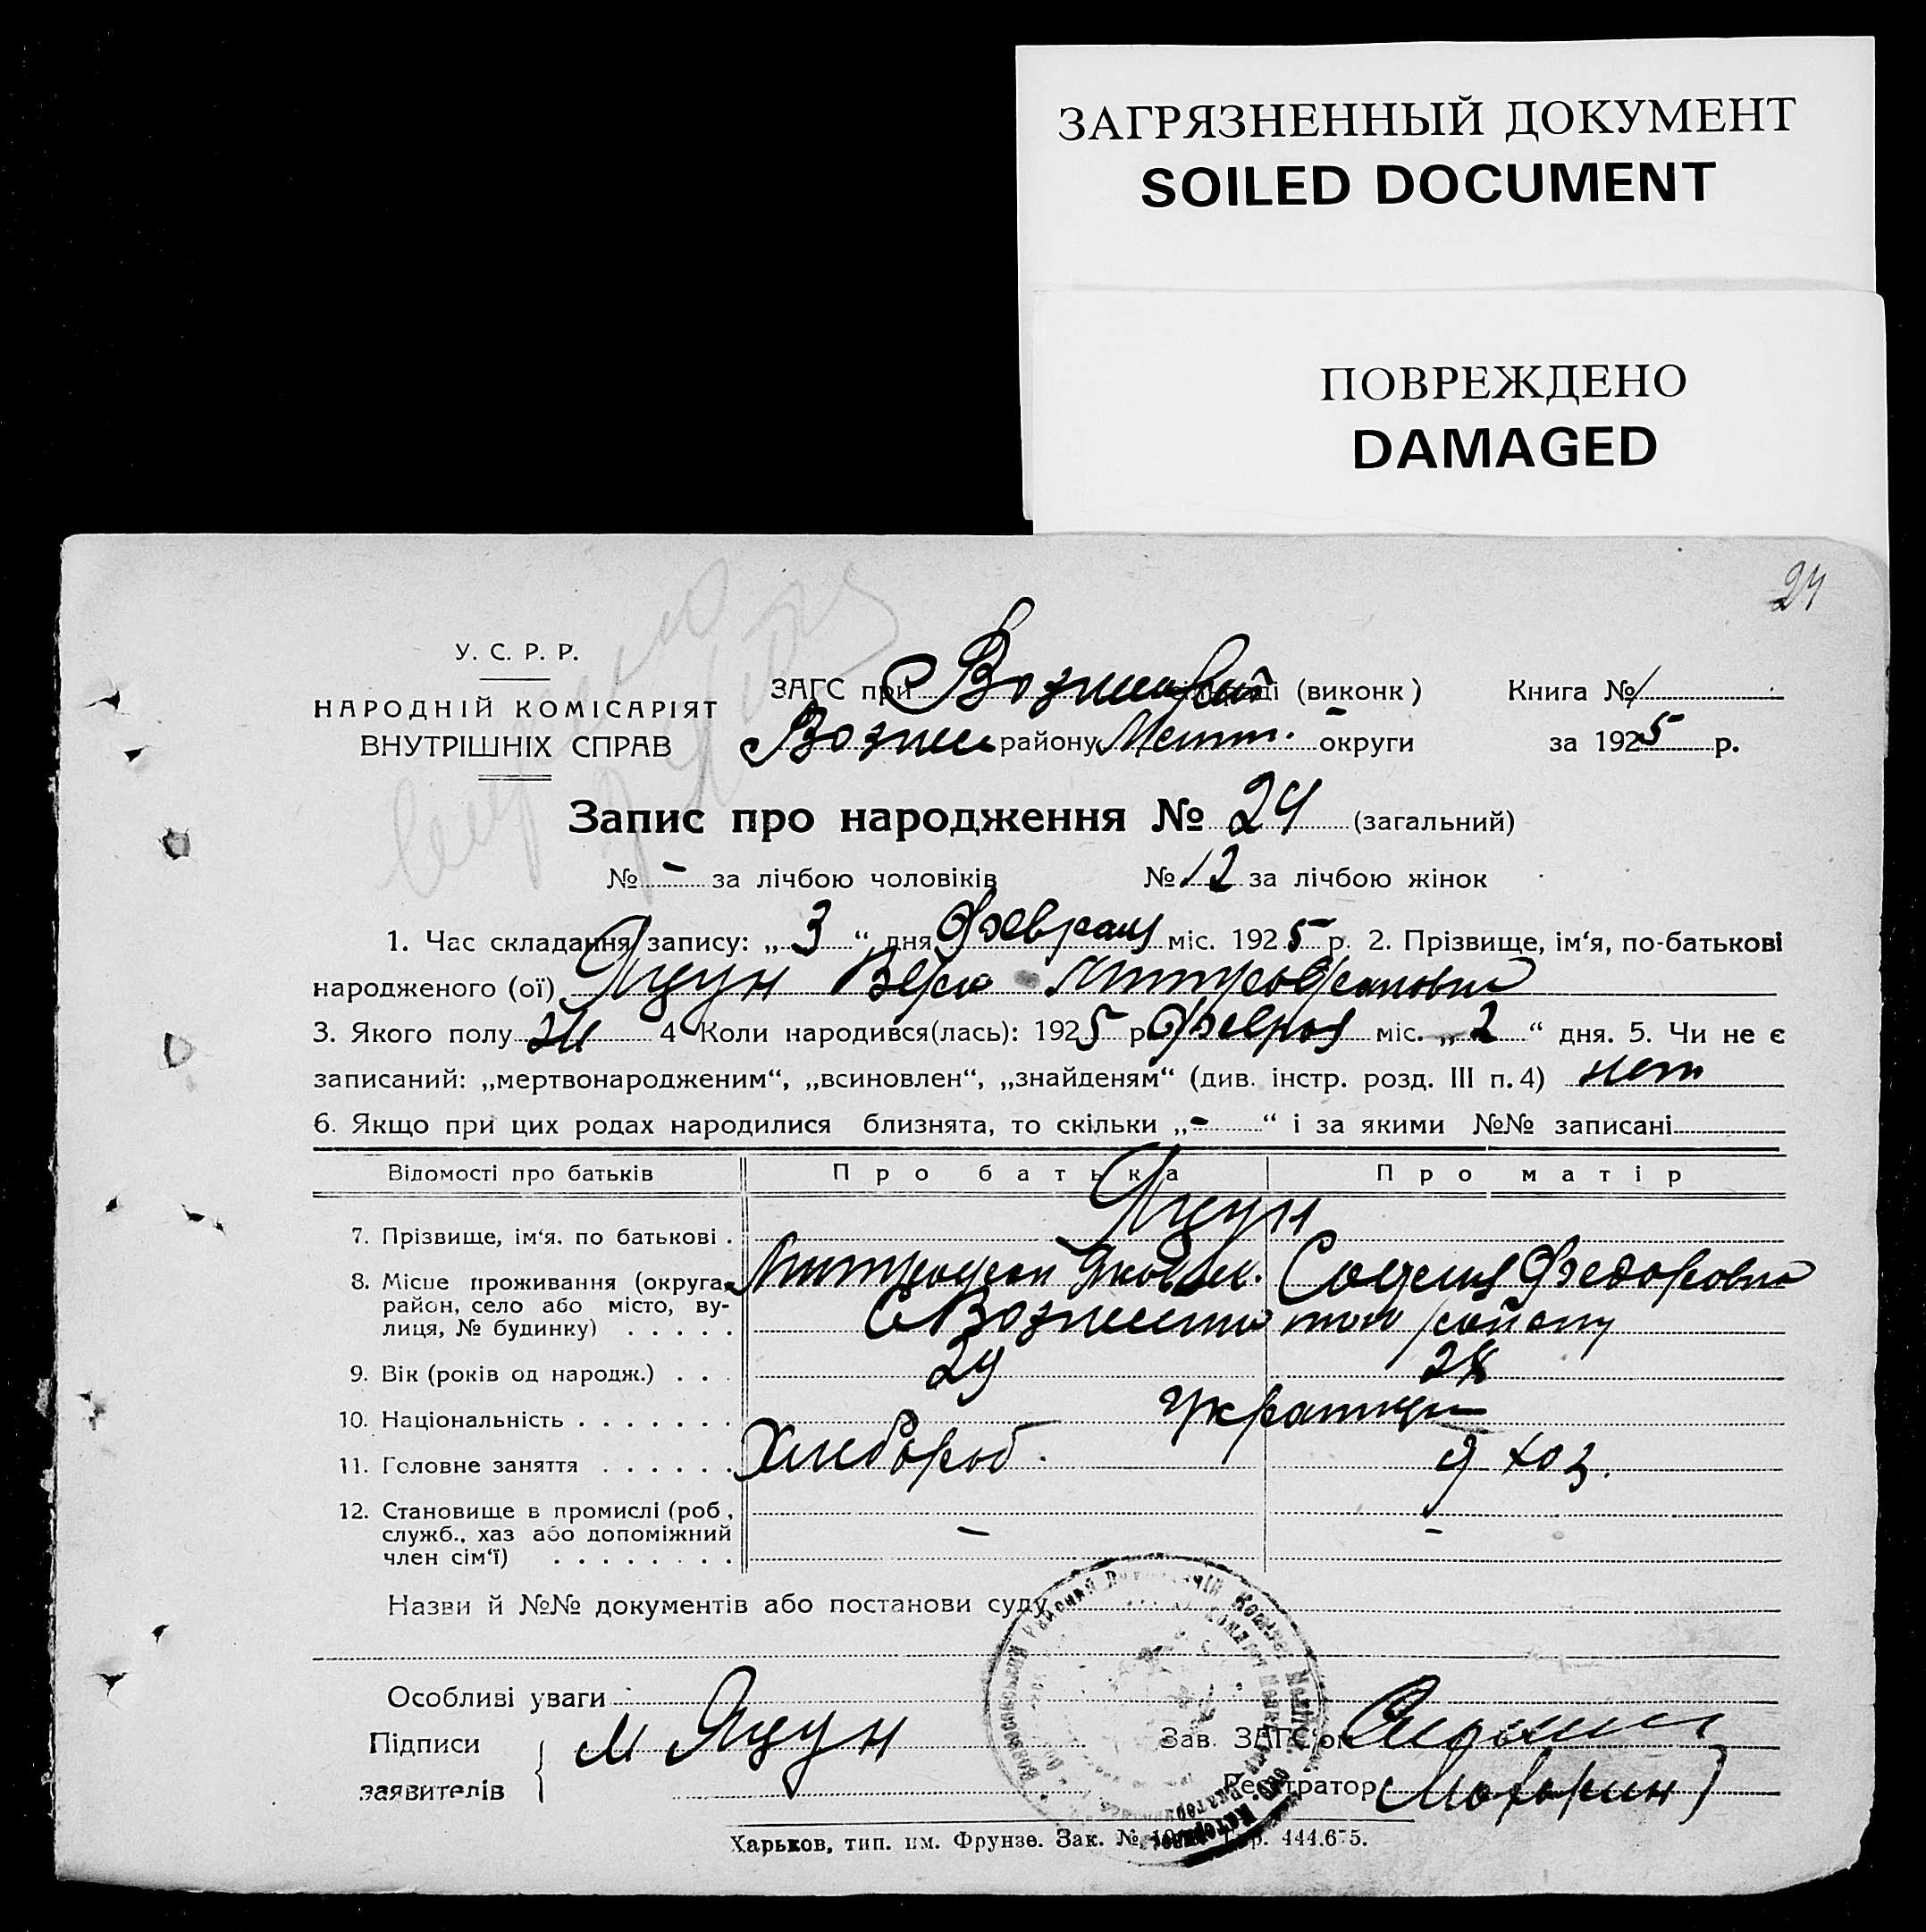 ЗАГРЯЗНЕННЫЙ ДОКУМЕНТ
SOILED DOCUMENT
ПОВРЕЖДЕНО
DAMAGED
24
У. С. Р. Р.
НАРОДНІЙ КОМІСАРІЯТ
ВНУТРІШНІХ СПРАВ
ЗАГС при (виконк)
Книга № 1
Вознес районуМелит. округи
за 1925 р.
Запис про народження № 24 (загальний)
№ - за лічбою чоловіків № 12 за лічбою жінок
1. Час складання запису: „ 3 “ дня Февраля міс. 1925 р. 2. Прізвище, ім‘я, по-батькові
народженого (ої) Яцун Вера Митрофановна
3. Якого полу ж 4 Коли народився(лась): 1925 р. Февраля міс. „ 2 “ дня. 5. Чи не є
записаний: „мертвонародженим“, „всиновлен“, „знайденям“ (див. інстр. розд. III п. 4) нет
6. Якщо при цих родах народилися близнята, то скільки „ - “ і за якими №№ записані
Відомості про батьків Про батька Про матір
7. Прізвище, ім‘я. по батькові . Яцун
Митрофан Яковл. София Федоровна
8. Місце проживання (округа,
район, село або місто, ву-
лиця, № будинку) . . . . .
9. Вік (років од народж.) . . . 29
10. Національність . . . . . . .
11. Головне заняття . . . . . . Хлебороб. Д хоз.
12. Становище в промислі (роб,
служб., хаз або допоміжний - -
член сім‘ї) . . . . . . . .
Назви й №№ документів або постанови суду
Особливі уваги
Підписи
заявителів
М Яцун
Зав. ЗАГС'ом
Реєстратор
Харьков, тип. им. Фрунзе. Зак. № 444.675.